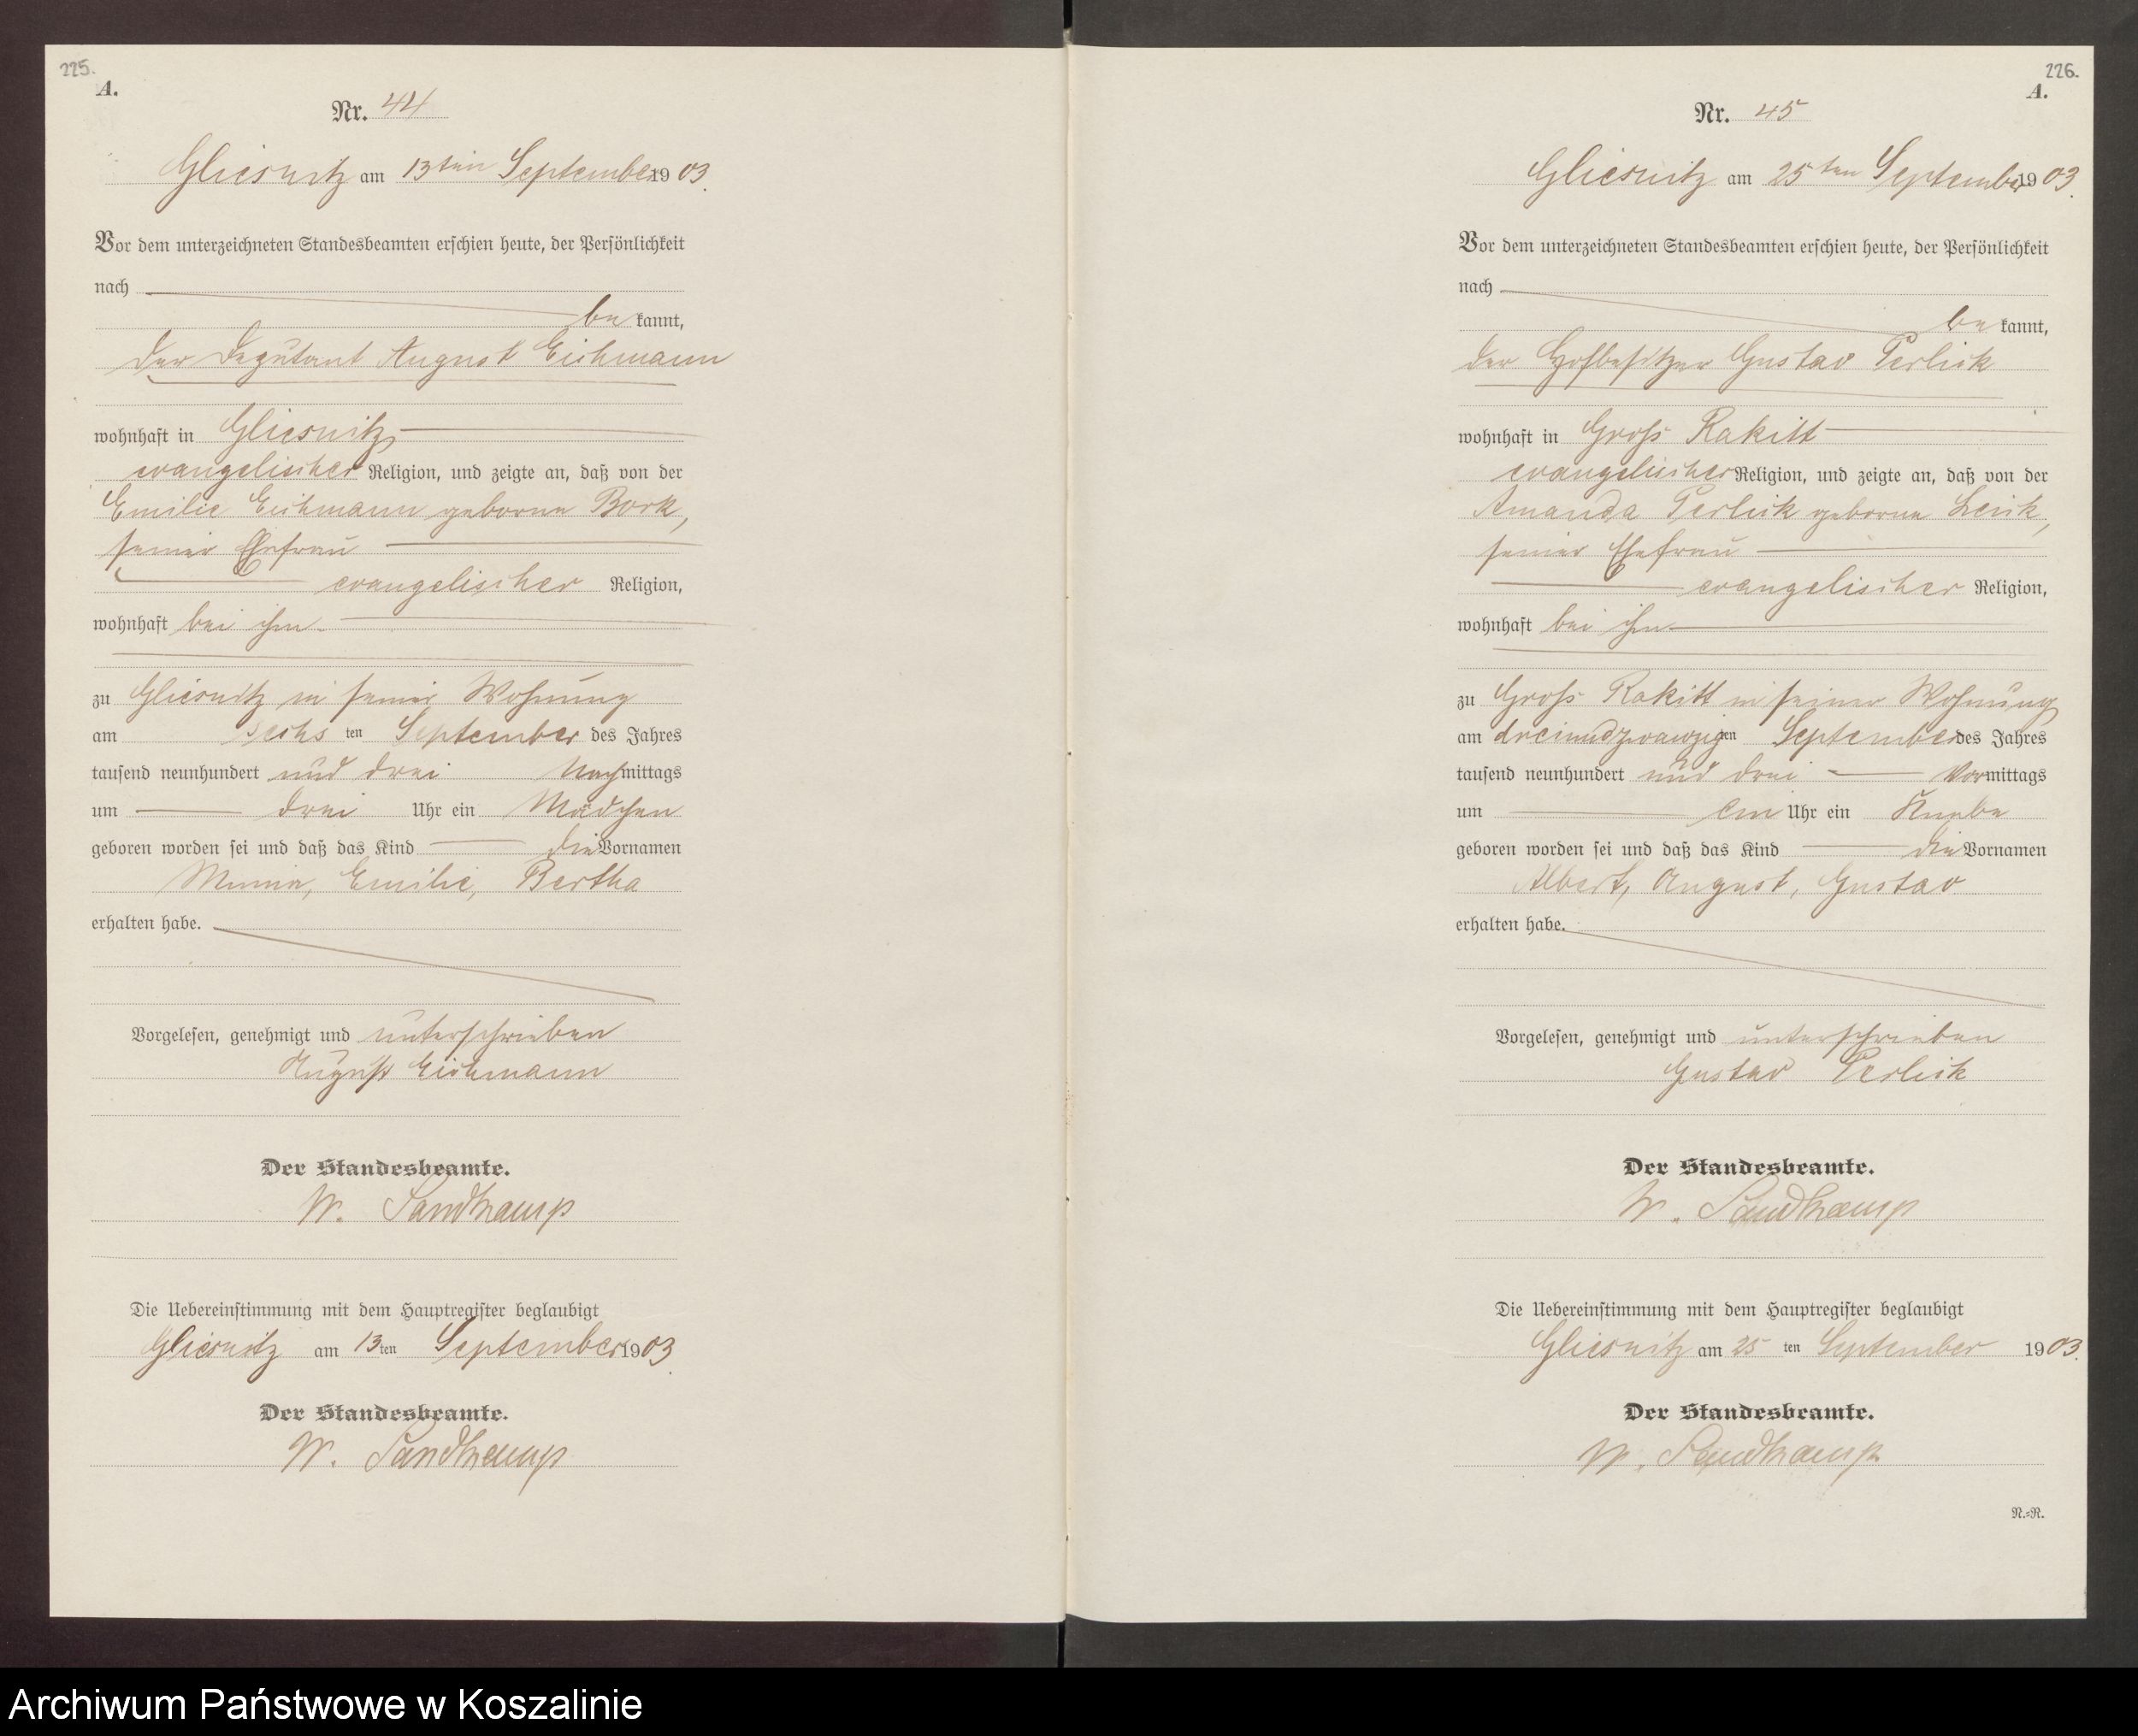 225.
A.
Nr. 44
Gliesnitz am 13ten September 1903.
Vor dem unterzeichneten Standesbeamten erschien heute, der Persönlichkeit
nach
be kannt,
der Deputant August Eichmann
wohnhaft in Gliesnitz,
evangelischer Religion, und zeigte an, daß von der
Emilie Eichmann geborne Bork,
seiner Ehefrau
evangelischer Religion,
wohnhaft bei ihm
zu Gliesnitz in seiner Wohnung
am sechs ten September des Jahres
tausend neunhundert und drei Nachmittags
um drei Uhr ein Mädchen
geboren worden sei und daß das Kind die Vornamen
Emilie, Bertha
erhalten habe.
Vorgelesen, genehmigt und unterschrieben
August Eichmann
Der Standesbeamte.
W. Sandkamp
Die Uebereinstimmung mit dem Hauptregister beglaubigt
Gliesnitz am 13ten September 1903.
Der Standesbeamte.
W. Sandkamp
226.
A.
Nr. 45
Gliesnitz am 25ten September 1903.
Vor dem unterzeichneten Standesbeamten erschien heute, der Persönlichkeit
nach
be kannt,
der Hofbesitzer Gustav Perlick
wohnhaft in Groß Rakitt
evangelischer Religion, und zeigte an, daß von der
Amanda Perlick geborne
seiner Ehefrau
evangelischer Religion,
wohnhaft bei ihm
zu Groß Rakitt in seiner Wohnung
am dreiundzwanzigten September des Jahres
tausend neunhundert und drei Vormittags
um ein Uhr ein Knabe
geboren worden sei und daß das Kind die Vornamen
Albert, August, Gustav
erhalten habe.
Vorgelesen, genehmigt und unterschrieben
Gustav Perlick
Der Standesbeamte.
W. Sandkamp
Die Uebereinstimmung mit dem Hauptregister beglaubigt
Gliesnitz am 25 ten September 1903.
Der Standesbeamte.
W. Sandkamp
N.=N.
Archiwum Państwowe w Koszalinie